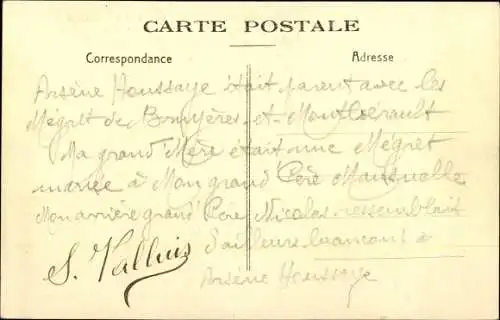 CARTE POSTALE
Correspondance
Adresse
Arsène Houssaye était parent avec les
Mégret de Bruyères-et-Montbérault
Ma grand Mère était une Mégret
mariée à Mon grand Père
Mon arrière grand Père Nicolas ressemblait
d'ailleurs beaucoup à
Arsène Houssaye